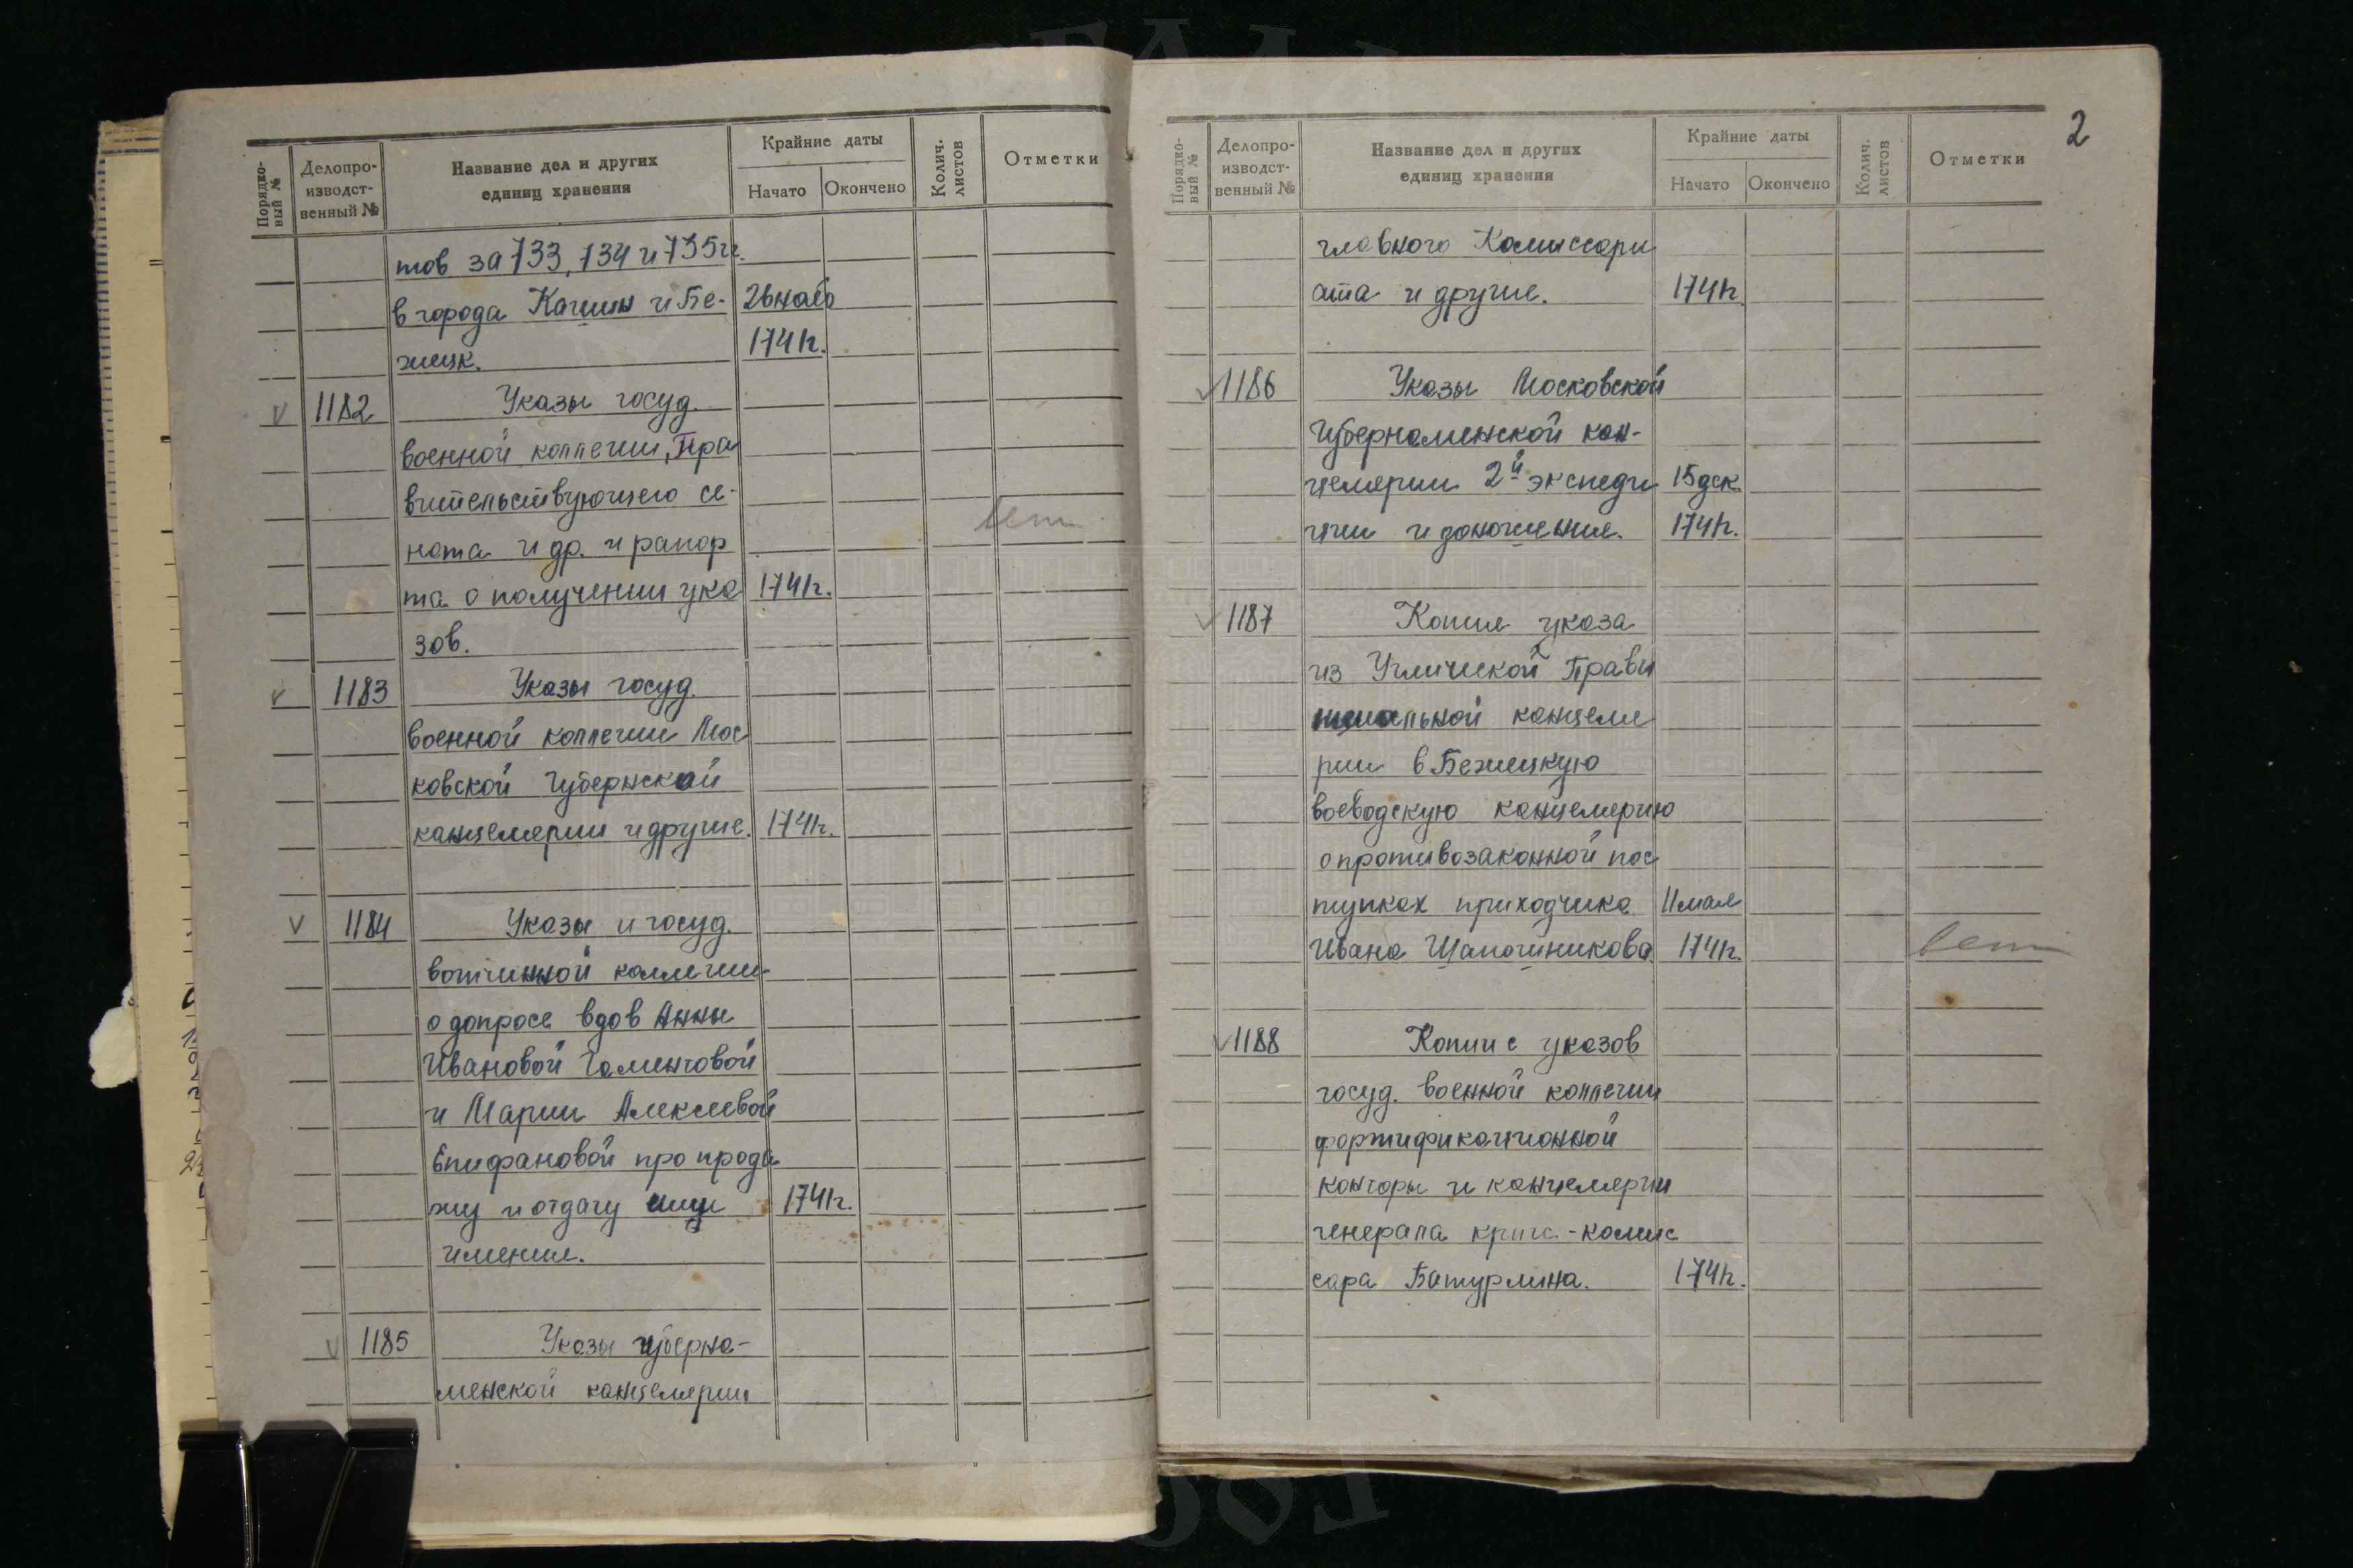 Порядко-
вый №
Делопро-
изводст-
венный №
Название дел и других
единиц хранения
Крайние даты
Начато
Окончено
Колич.
листов
Отметки
тов за 733, 734 и 735 гг.
в города Кашин и Бе- 26 нояб
жецк. 1741г.
v 1182 Указы госуд.
военной коллегии, Пра
вительствующего се-
ната и др. и рапор
та о получении ука 1741г.
зов.
v 1183 Указы госуд.
военной коллегии Мос
ковской Губернской
канцелярии и другие. 1741г.
v 1184 Указы и госуд.
вотчинной коллегии
о допросе вдов Анны
Ивановой
и Марии Алексеевой
Епифановой про прода
жу и отдачу ими 1741г.
имения.
v 1185 Указы губерна-
менской канцелярии
2
Порядко-
вый №
Делопро-
изводст-
венный №
Название дел и других
единиц хранения
Крайние даты
Начато
Окончено
Колич.
листов
Отметки
главного Комиссари
ата и другие. 1741г.
v 1186 Указы Московской
Губернаменской кан-
целярии 2й экспеди 15 дек.
ции и доношение. 1741г.
v 1187 Копия указа
из Углической Прави
тельной канцеля
рии в Бежецкую
воеводскую канцелярию
о противозаконной пос
тупках приходчика 11 мая
Ивана Шапошникова 1741г.
v 1188 Копии с указов
госуд. военной коллегии
фортификационной
конторы и канцелярии
генерала кригс-комис
сара Батурлина. 1741г.